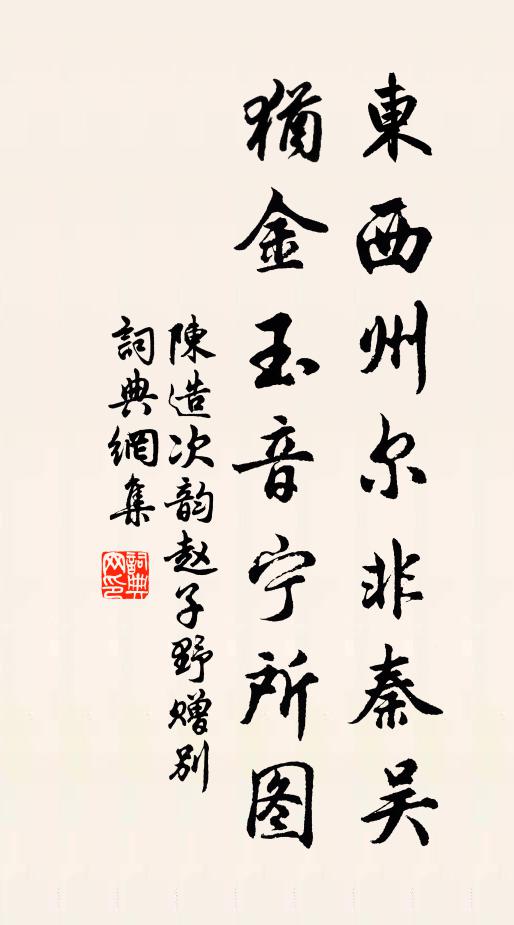 東西州尔非秦吴
猶金玉音宁所图
陳造次韵赵子野赠别
詞典網集
詞典网印